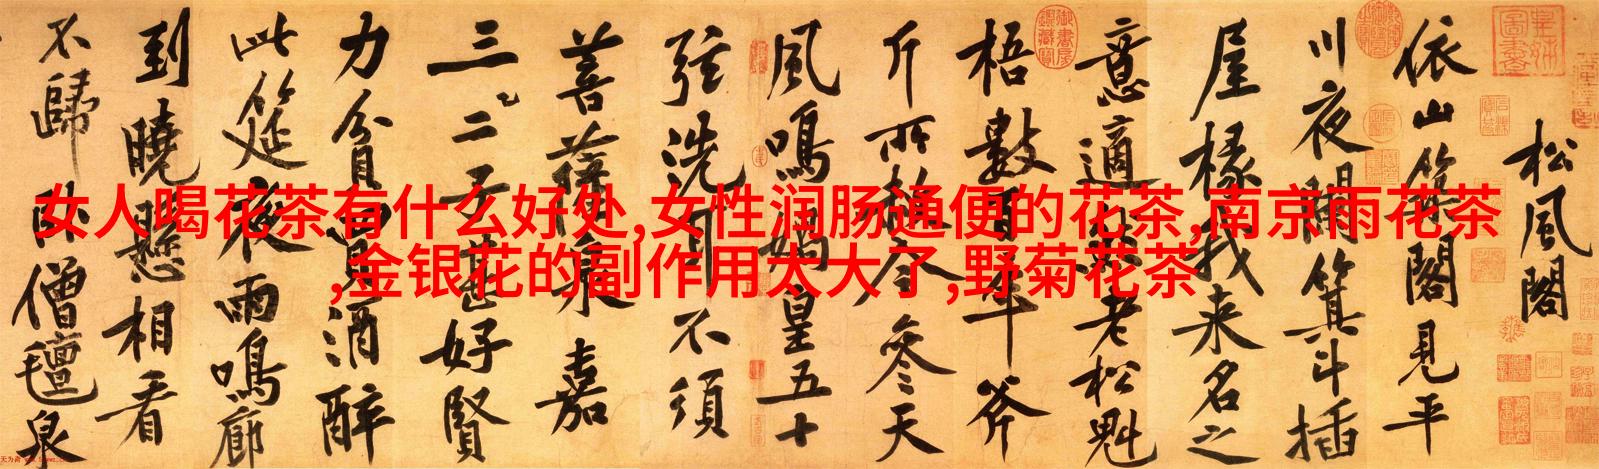 女人喝花茶有什么好处,女性润肠通便的花茶,南京雨花茶
,金银花的副作用太大了,野菊花茶
松風閣
依山築閣見平
川夜闌箕斗插
屋椽我来名之
意適然老松魁
梧數百年斧
斤所赦今參天
風鳴媧皇五十
弦洗耳不須
菩薩泉嘉
三二子甚好賢
力貧買酒醉
此筵夜雨鳴廊
到曉懸相看
不歸卧僧氈泉